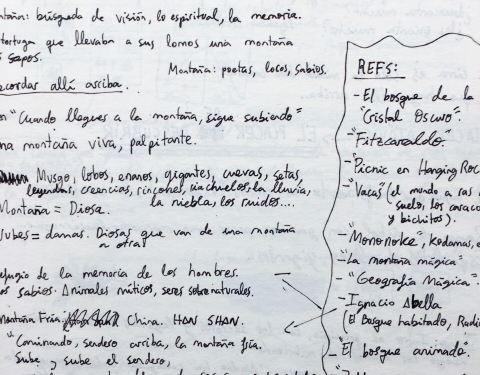 ntaña: búsqueda de visión, lo espiritual, la memoria.
tortuga que llevaba a sus lomos una montaña
sapos.
Montaña: poetas, locos, sabios.
recordar allí arriba.
"Cuando llegues a la montaña, sigue subiendo"
na montaña viva, palpitante.
Musgo, lobos, enanos, gigantes, cuevas, setas,
leyendas, creencias, rincones, riachuelos, la lluvia,
la niebla, los ruidos....
Montaña = Diosa.
Nubes = damas. Diosas que van de una montaña
a otra
efugio de la memoria de los hombres.
os sabios. Animales míticos, seres sobrenaturales.
Montaña Fría. China. HAN SHAN.
"Caminando, sendero arriba, la montaña fría.
Sube y sube el sendero,
REFS:
- El bosque de la
"Cristal Oscuro".
- "Fitzcaraldo".
- Picnic en Hanging Roc
- "Vacas" (el mundo a ras
suelo, los caraco
y bichitos).
- "Mononoke", kodamas, e
- La montaña mágica"
- "Geografía Mágica".
- Ignacio Abella
(El Bosque habitado, Radi
- "El bosque animado".